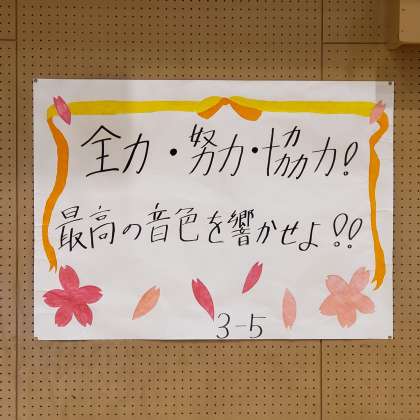 全力・努力・協力!
最高の音色を響かせよ!!
3-5